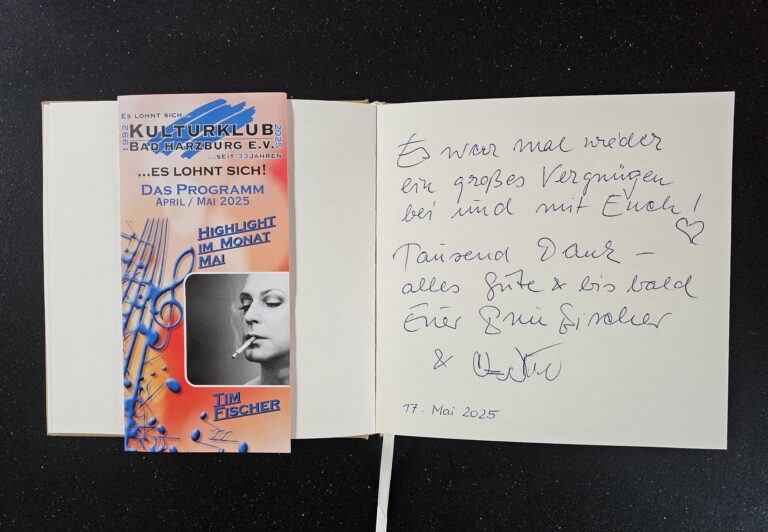 ES LOHNT SICH...
1992
KULTURKLUB
2025
BAD HARZBURG E.V.
...SEIT 33 JAHREN
...ES LOHNT SICH!
DAS PROGRAMM
APRIL / MAI 2025
HIGHLIGHT
IM MONAT
MAI
TIM
FISCHER
Es war mal wieder
ein großes Vergnügen
bei und mit Euch!
Tausend Dank –
alles Gute & bis bald
Euer Tim Fischer
&
17. Mai 2025